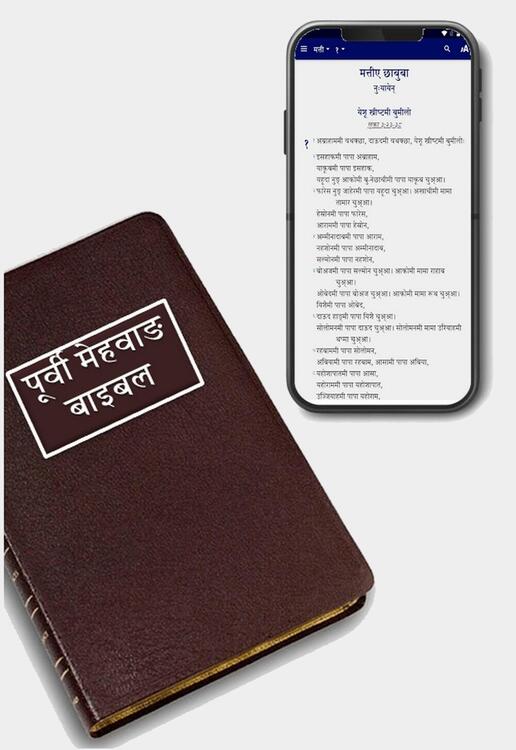 पूर्वी मेहवाङ
बाइबल
मत्ती १
मत्तीए छाबुबा
नुःयायेन्
येशू ख्रीष्टमी बुमीलो
लूका ३:२३-३८
१ अब्राहाममी यथक्छा, दाऊदमी यथक्छा, येशू ख्रीष्टमी बुमीलोः
इसहाकमी पापा अब्राहाम,
याकूबमी पापा इसहाक,
यहूदा नुङ् आकोमी बु-नेछाचीमी पापा याकूब चुअ्आ।
फारेस नुङ् जाहेरमी पापा यहूदा चुअ्आ। अखाचीमी मामा
तामार चुअ्आ।
हेस्रोनमी पापा फारेस,
आराममी पापा हेस्रोन,
अम्मीनादाबमी पापा आराम,
नहशोनमी पापा अम्मीनादाब,
सल्मोनमी पापा नहशोन,
बोअजमी पापा सल्मोन चुअ्आ। आकोमी मामा राहाब
चुअ्आ।
ओबेदमी पापा बोअज चुअ्आ। आकोमी मामा रूथ चुअ्आ।
यिशैमी पापा ओबेद,
दाऊद हाङ्मी पापा यिशै चुअ्आ।
सोलोमनमी पापा दाऊद चुअ्आ। सोलोमनमी मामा उरियाहमी
थप्मा चुअ्आ।
रहबाममी पापा सोलोमन,
अबियामी पापा रहबाम, आसामी पापा अबिया,
यहोशापातमी पापा आसा,
यहोराममी पापा यहोशापात,
उज्जियाहमी पापा यहोराम,